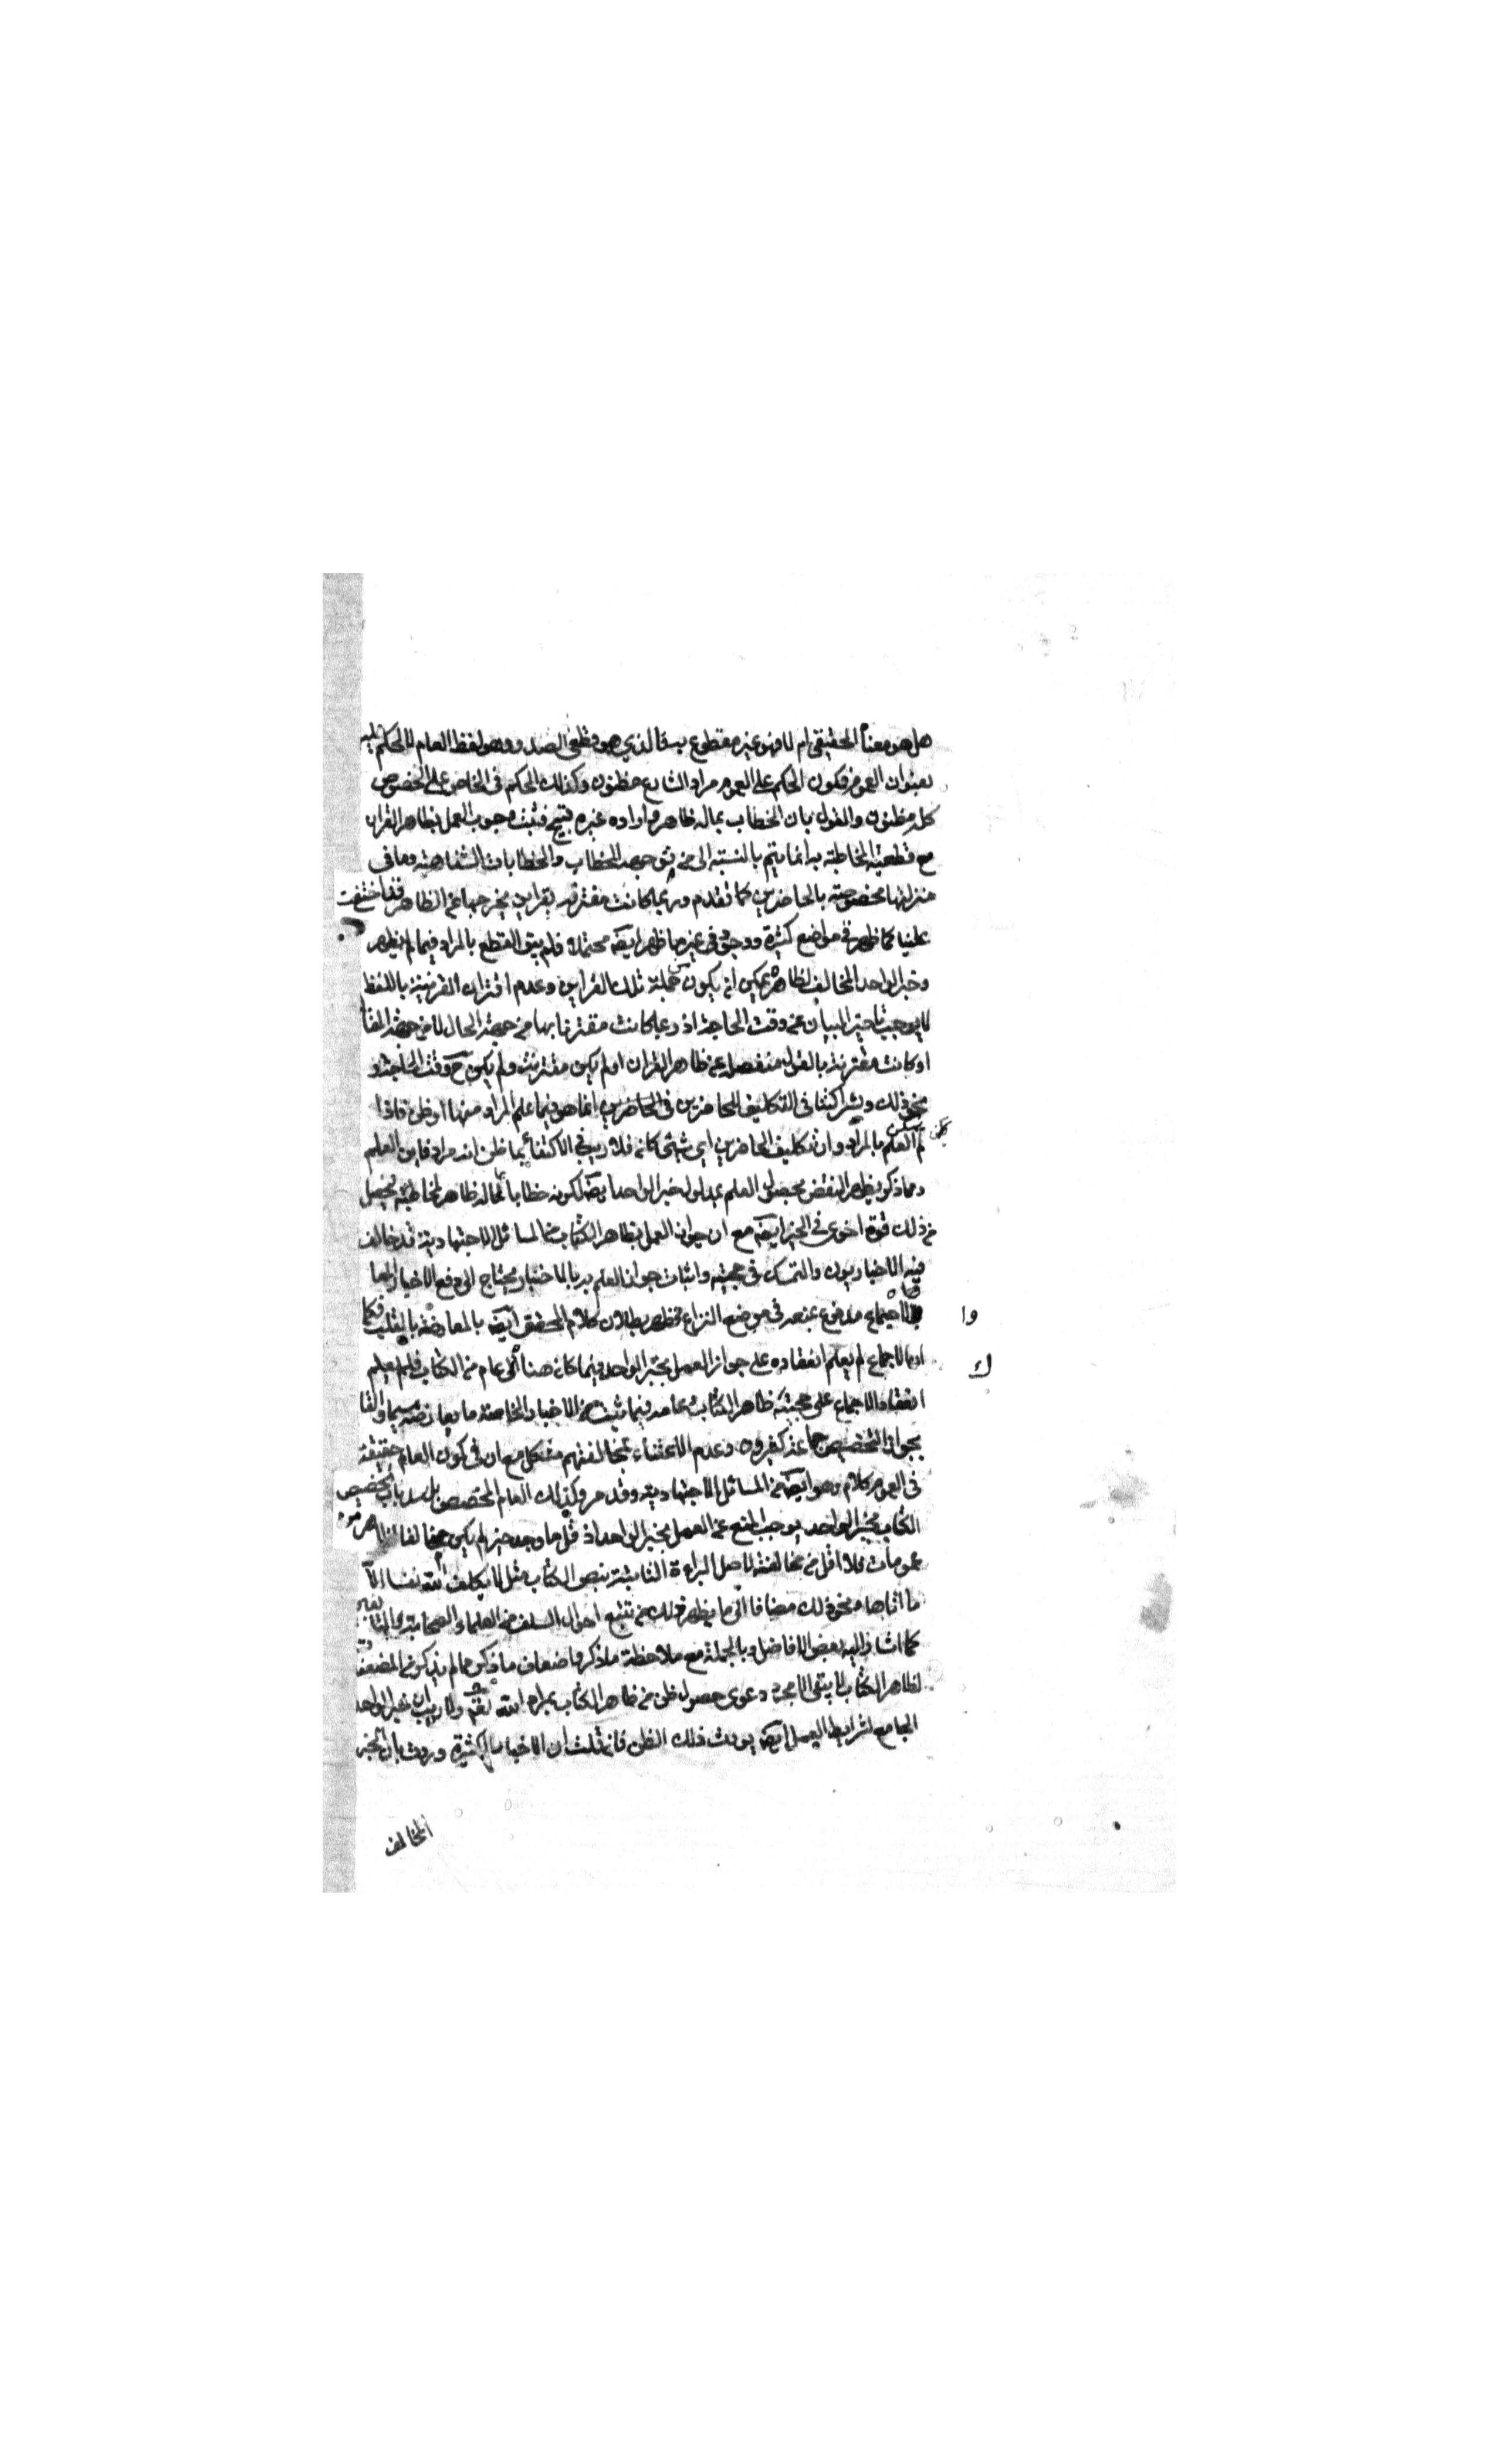 هل هو معناه الحقيقي ام لا فهو غير مقطوع به فالذي هو قطعي الصدور هو لفظ العام لا الحكم عليه
بعنوان العموم فكون الحكم على العموم مراد الشارع مظنون وكذلك الحكم في الخاص على الخصوص
كل مظنون والقول بان الخطاب بماله ظاهر وارادة غيره قبيح فثبت وجوب العمل بظاهر القران
مع قطعية المخاطبة به انما يتم بالنسبة الى من توجه الخطاب والخطابات الشفاهية وما في
منزلتها مخصوصة بالحاضرين كما تقدم وربما كانت مقترنة بقراين يخرجها عن الظاهر قد اختفت
علينا كما ظهر في مواضع كثيرة ووجوده في غير ما ظهر ايضَ محتملة فلم يبق القطع بالمراد فيما لم يظهر
وخبر الواحد المخالف لظاهره يمكن ان يكون من جملة تلك القراين وعدم اقتران القرينة باللفظ
لا يوجب تاخير البيان عن وقت الحاجة اذ ربما كانت مقترنا بها من جهة الحال لا من جهة المقا
او كانت مقترنة بالقول منفصلة عن ظاهر القران او لم يكن مقترنة ولم يكن ح وقت الحاجة و
نحو ذلك وبشراكتنا في التكليف للحاضرين في الحاضرين انما هو فيما علم المراد منها او ظن فاذا
لم يمكن العلم بالمراد وان تكليف الحاضرين اي شئ كانه فلا ريب في الاكتفاء بما ظن انه مراد فاين العلم
ومما ذكر يظهر النقض بحصول العلم بمدلول خبر الواحد ايضَ لكونه خطابا بماله ظاهر لمخاطبه فيحصل
من ذلك قوة اخرى في الخبر ايضَ مع ان جواز العمل بظاهر الكتاب من المسائل الاجتهادية قد خالف
فيه الاخباريون والتمسك في حجيته واثبات جواز العلم به بالاخبار يحتاج الى دفع الاخبار المعا
والاجماع مدفوع بمنعه في موضع النزاع فظهر بطلان كلام المحقق ايضَ بالمعارضة بالقلب فكما
ان الاجماع لم يعلم انعقاده على جواز العمل بخبر الواحد فيما كان هناك عام من الكتاب فلم يعلم
انعقاد الاجماع على حجية ظاهر الكتاب وعامه فيما ثبت من الاخبار الخاصة ما يعارضه سيما والقا
بجواز التخصيص جماعة كثيرون وعدم الاعتناء بمخالفتهم مشكل مع ان في كون العام حقيقة
في العموم كلام وهو ايضَ من المسائل الاجتهادية وقد مر وكذلك العام المخصص بل سد باب تخصيص
الكتاب بخبر الواحد يوجب المنع عن العمل بخبر الواحد اذ قل ما وجد خبر لم يكن مخالفا لظاهر من
عمومات فلا اقل من مخالفته لاصل البراءة الثابتة بنص الكتاب مثل لا يكلف الله نفسا الا
ما اتاها ونحو ذلك مضافا الى ما يظهر ذلك من تتبع احوال السلف من العلماء والصحابة والتابعين
كما اشار اليه بعض الافاضل وبالجملة مع ملاحظة ما ذكر واضعاف ما ذكر مما لم يذكر من المضعفة
لظاهر الكتاب لا يبقى الا مجرد دعوى حصول ظن من ظاهر الكتاب بمراد الله تعَ ولا ريب ان خبر الواحد
الجامع لشرايط العمل ايضَ يورث ذلك الظن فان قلت ان الاخبار الكثيرة وردت بان الخبر
المخالف